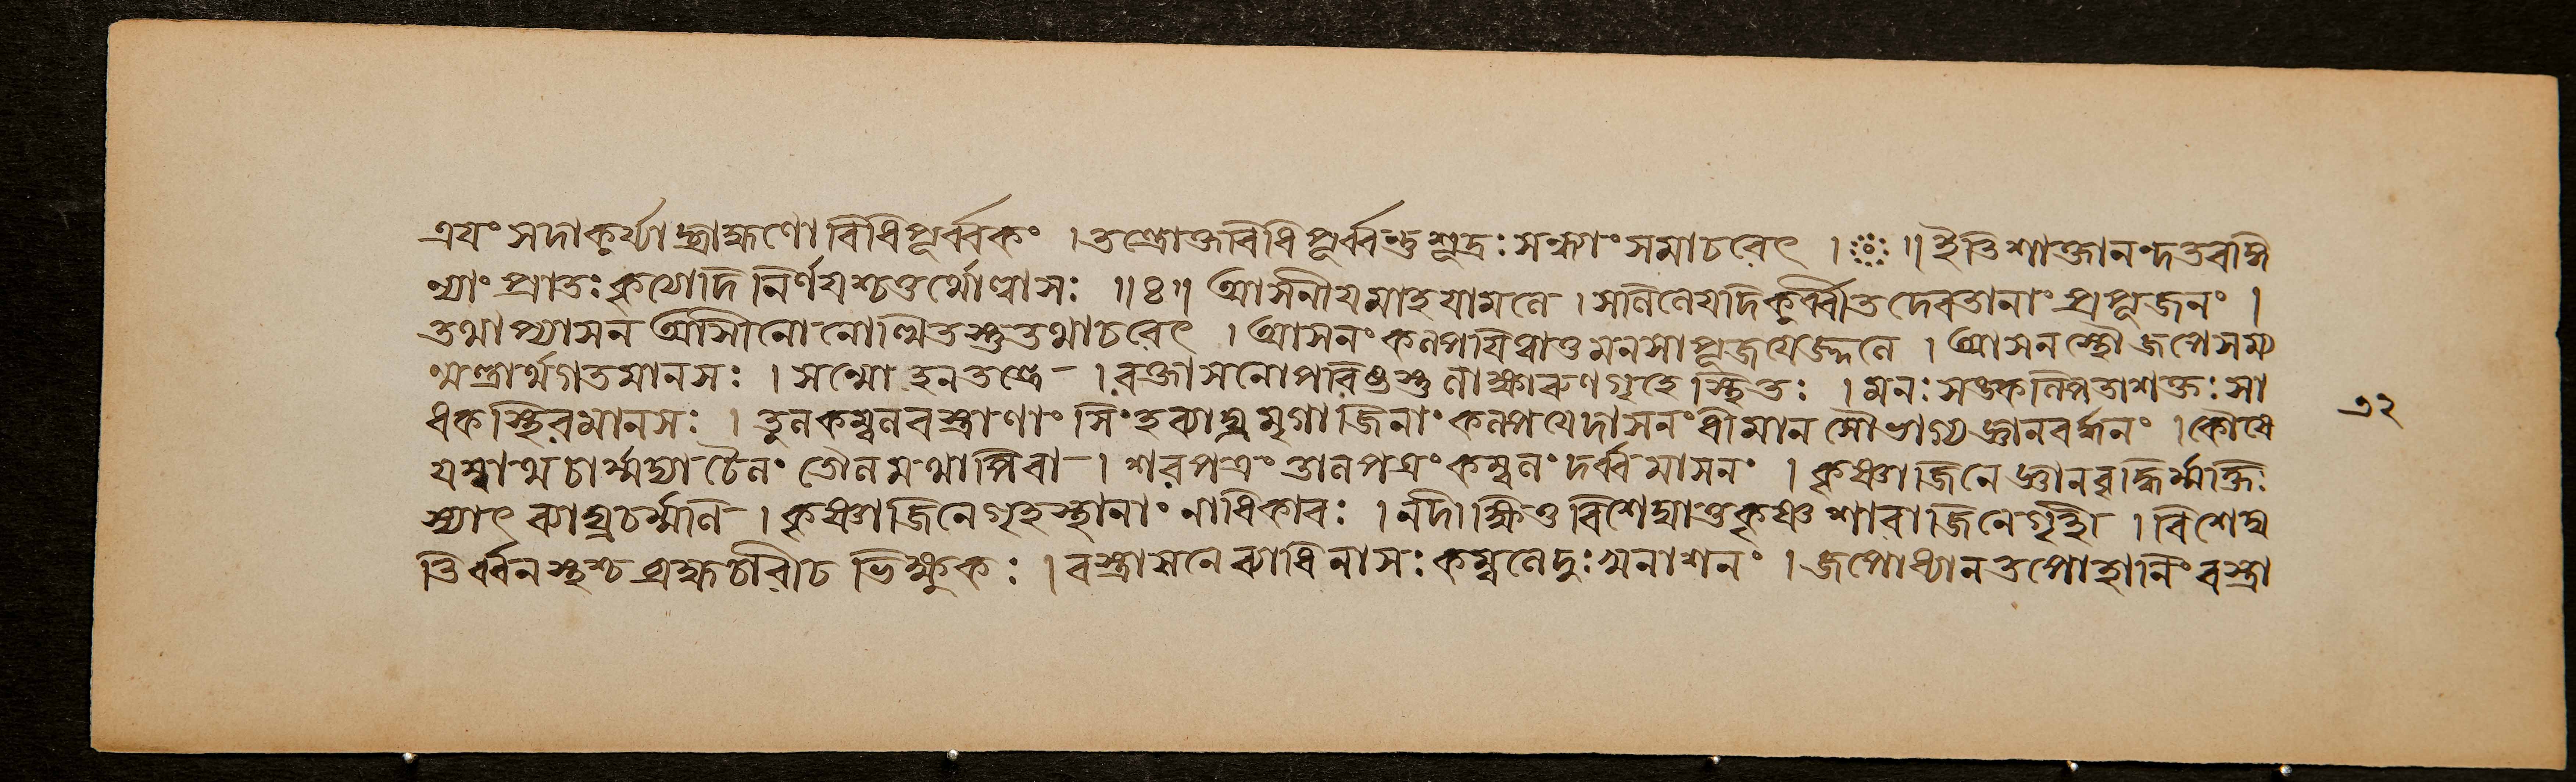 এযং সদাকুর্য্যাদ্ব্রাহ্মণো বিধিপূর্ব্বকং । তন্ত্রোক্তবিধিপূর্ব্বন্তু শূদ্রঃ সন্ধ্যাং সমাচরেৎ । ॥ ইতি শাক্তানন্দতরঙ্গি
ণ্যাং প্রাতঃকৃত্যাদি নির্ণয়শ্চতুর্থোল্লাসঃ ॥ ৪ ॥ আসনীয়মাহ যামলে । সলিলে যদি কুর্ব্বীত দেবতানাং প্রপূজনং ।
তথাপ্যাসন আসিনো নোত্থিতস্তু তথাচরেৎ । আসনং কল্পয়িত্বাতু মনসা পূজয়েজ্জলে । আসনস্থৌ জপেৎসম্য
ঙ্মন্ত্রার্থগতমানসঃ । সম্মোহনতন্ত্রে । রক্তাসনোপবিষ্টস্তু লাক্ষারুণগৃহে স্থিতঃ । মনঃ সঙ্কল্পিতাশক্তঃ সা
ধকস্থিরমানসঃ । তুলকম্বলবস্ত্রাণাং সিংহব্যাঘ্রমৃগাজিনাং কল্পয়েদাসনং ধীমান সৌভাগ্যজ্ঞানবর্দ্ধনং । কৌষে
যম্বাথ চার্ম্মম্বা চৈলং তৌলমথাপিবা । শরপত্রং তালপত্রং কম্বলং দর্ব্বমাসনং । কৃষ্ণাজিনে জ্ঞানবৃদ্ধির্ম্মুক্তিঃ
স্যাৎ ব্যাঘ্রচর্ম্মণি । কৃষ্ণাজিনে গৃহস্থানাং নাধিকারঃ । নদীক্ষিতু বিশেষাতু কৃষ্ণশারাজিনে গৃহী । বিশেদ্য
তির্ব্বনস্থশ্চ ব্রহ্মচারীচ ভিক্ষুকঃ । বস্ত্রাসনে ব্যাধিনাসঃ কম্বলে দুঃখনাশনং । জপোধ্যানতপোহানিং বস্ত্রা
৩২